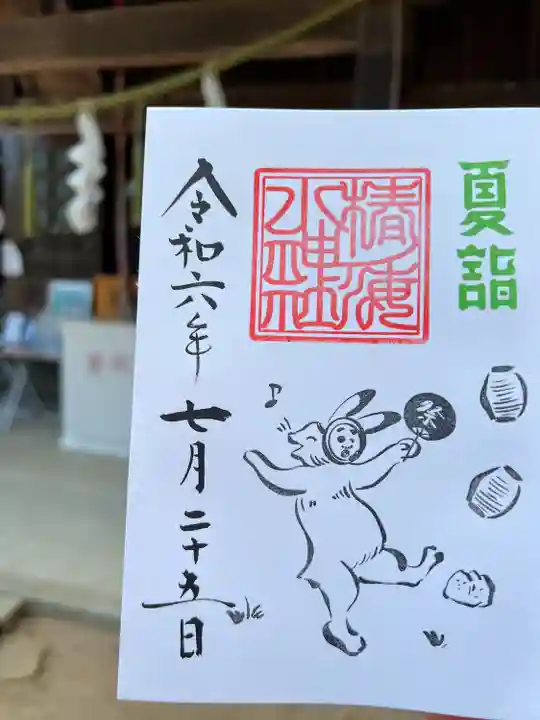 夏詣
椿海
水神社
祭
令和六年七月二十五日